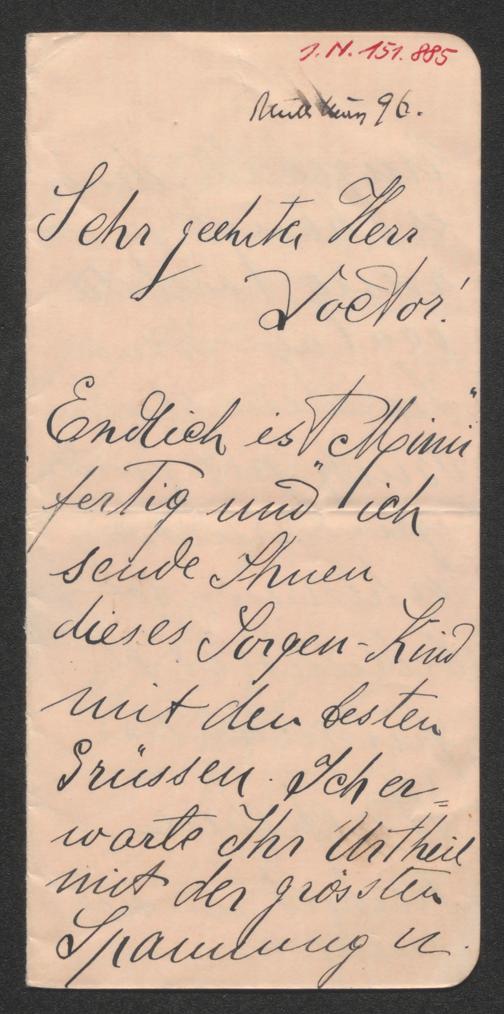 J.N. 151.885
96.
Sehr geehrter Herr
Doctor!
Endlich ist "Mimi"
fertig und ich
sende Ihnen
dieses Sorgen-Kind
mit den besten
Grüssen. Ich er=
warte Ihr Urtheil
mit der grössten
Spannung u.